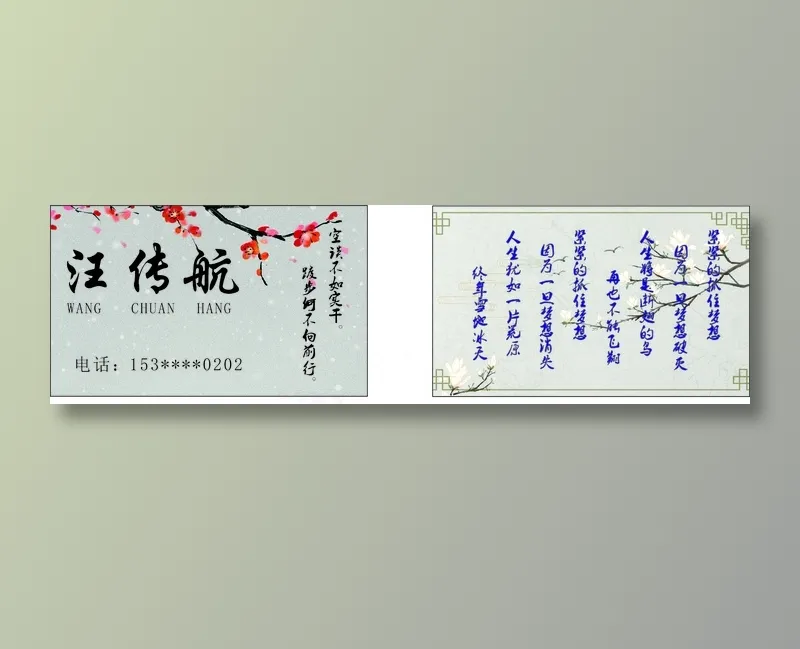 汪传航
WANG CHUAN HANG
电话：153****0202
空谈不如实干。
踱步何不向前行。
紧紧的抓住梦想
因为一旦梦想破灭
人生将是断翅的鸟
再也不能飞翔
紧紧的抓住梦想
因为一旦梦想消失
人生犹如一片荒原
终年雪地冰天